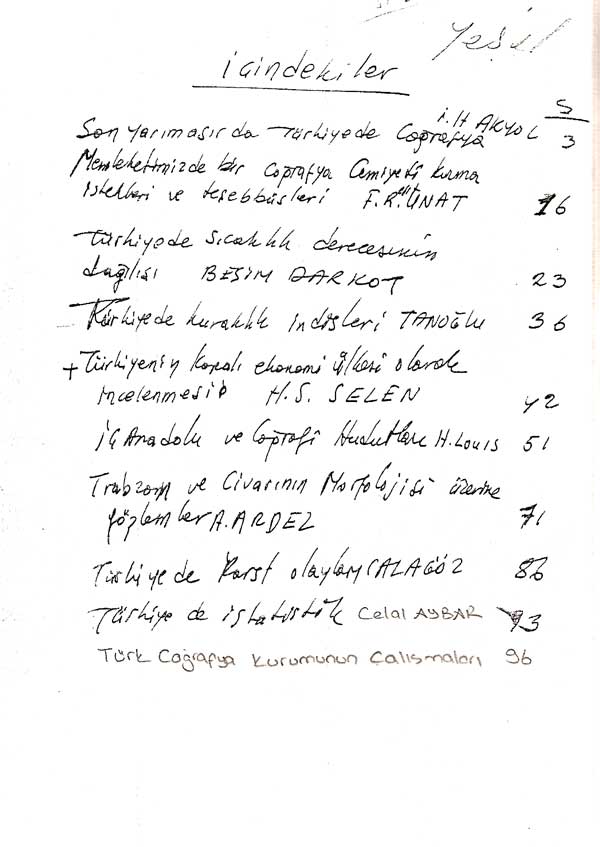 Yeşil
İçindekiler
S
İ.H AKYOL
Son yarımasırda Türkiyede Coğrafya 3
Memleketimizde bir Coğrafya Cemiyeti kurma
istekleri ve teşebbüsleri F.R. ÜNAT 16
Türkiyede sıcaklık derecesinin
dağılışı BESİM DARKOT 23
Türkiyede kuraklık indisleri TANOĞLU 36
+ Türkiyenin kapalı ekonomi ülkesi olarak
incelenmesi H.S. SELEN 42
İç Anadolu ve Coğrafî Hudutları H. Louis 51
Trabzon ve Civarının Morfolojisi üzerine
gözlemler A. ARDEL 71
Türkiyede Karst olayları C ALAGÖZ 86
Türkiye de istatistik Celal AYBAR 93
Türk Coğrafya Kurumunun Çalışmaları 96